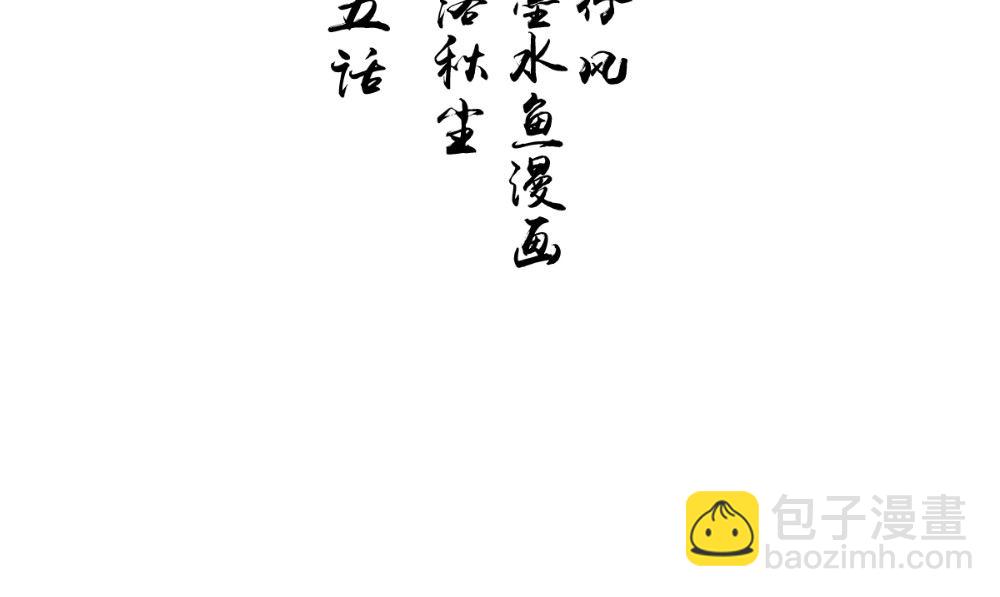 风
水鱼漫画
秋尘
五话
包子漫畫
baozimh.com